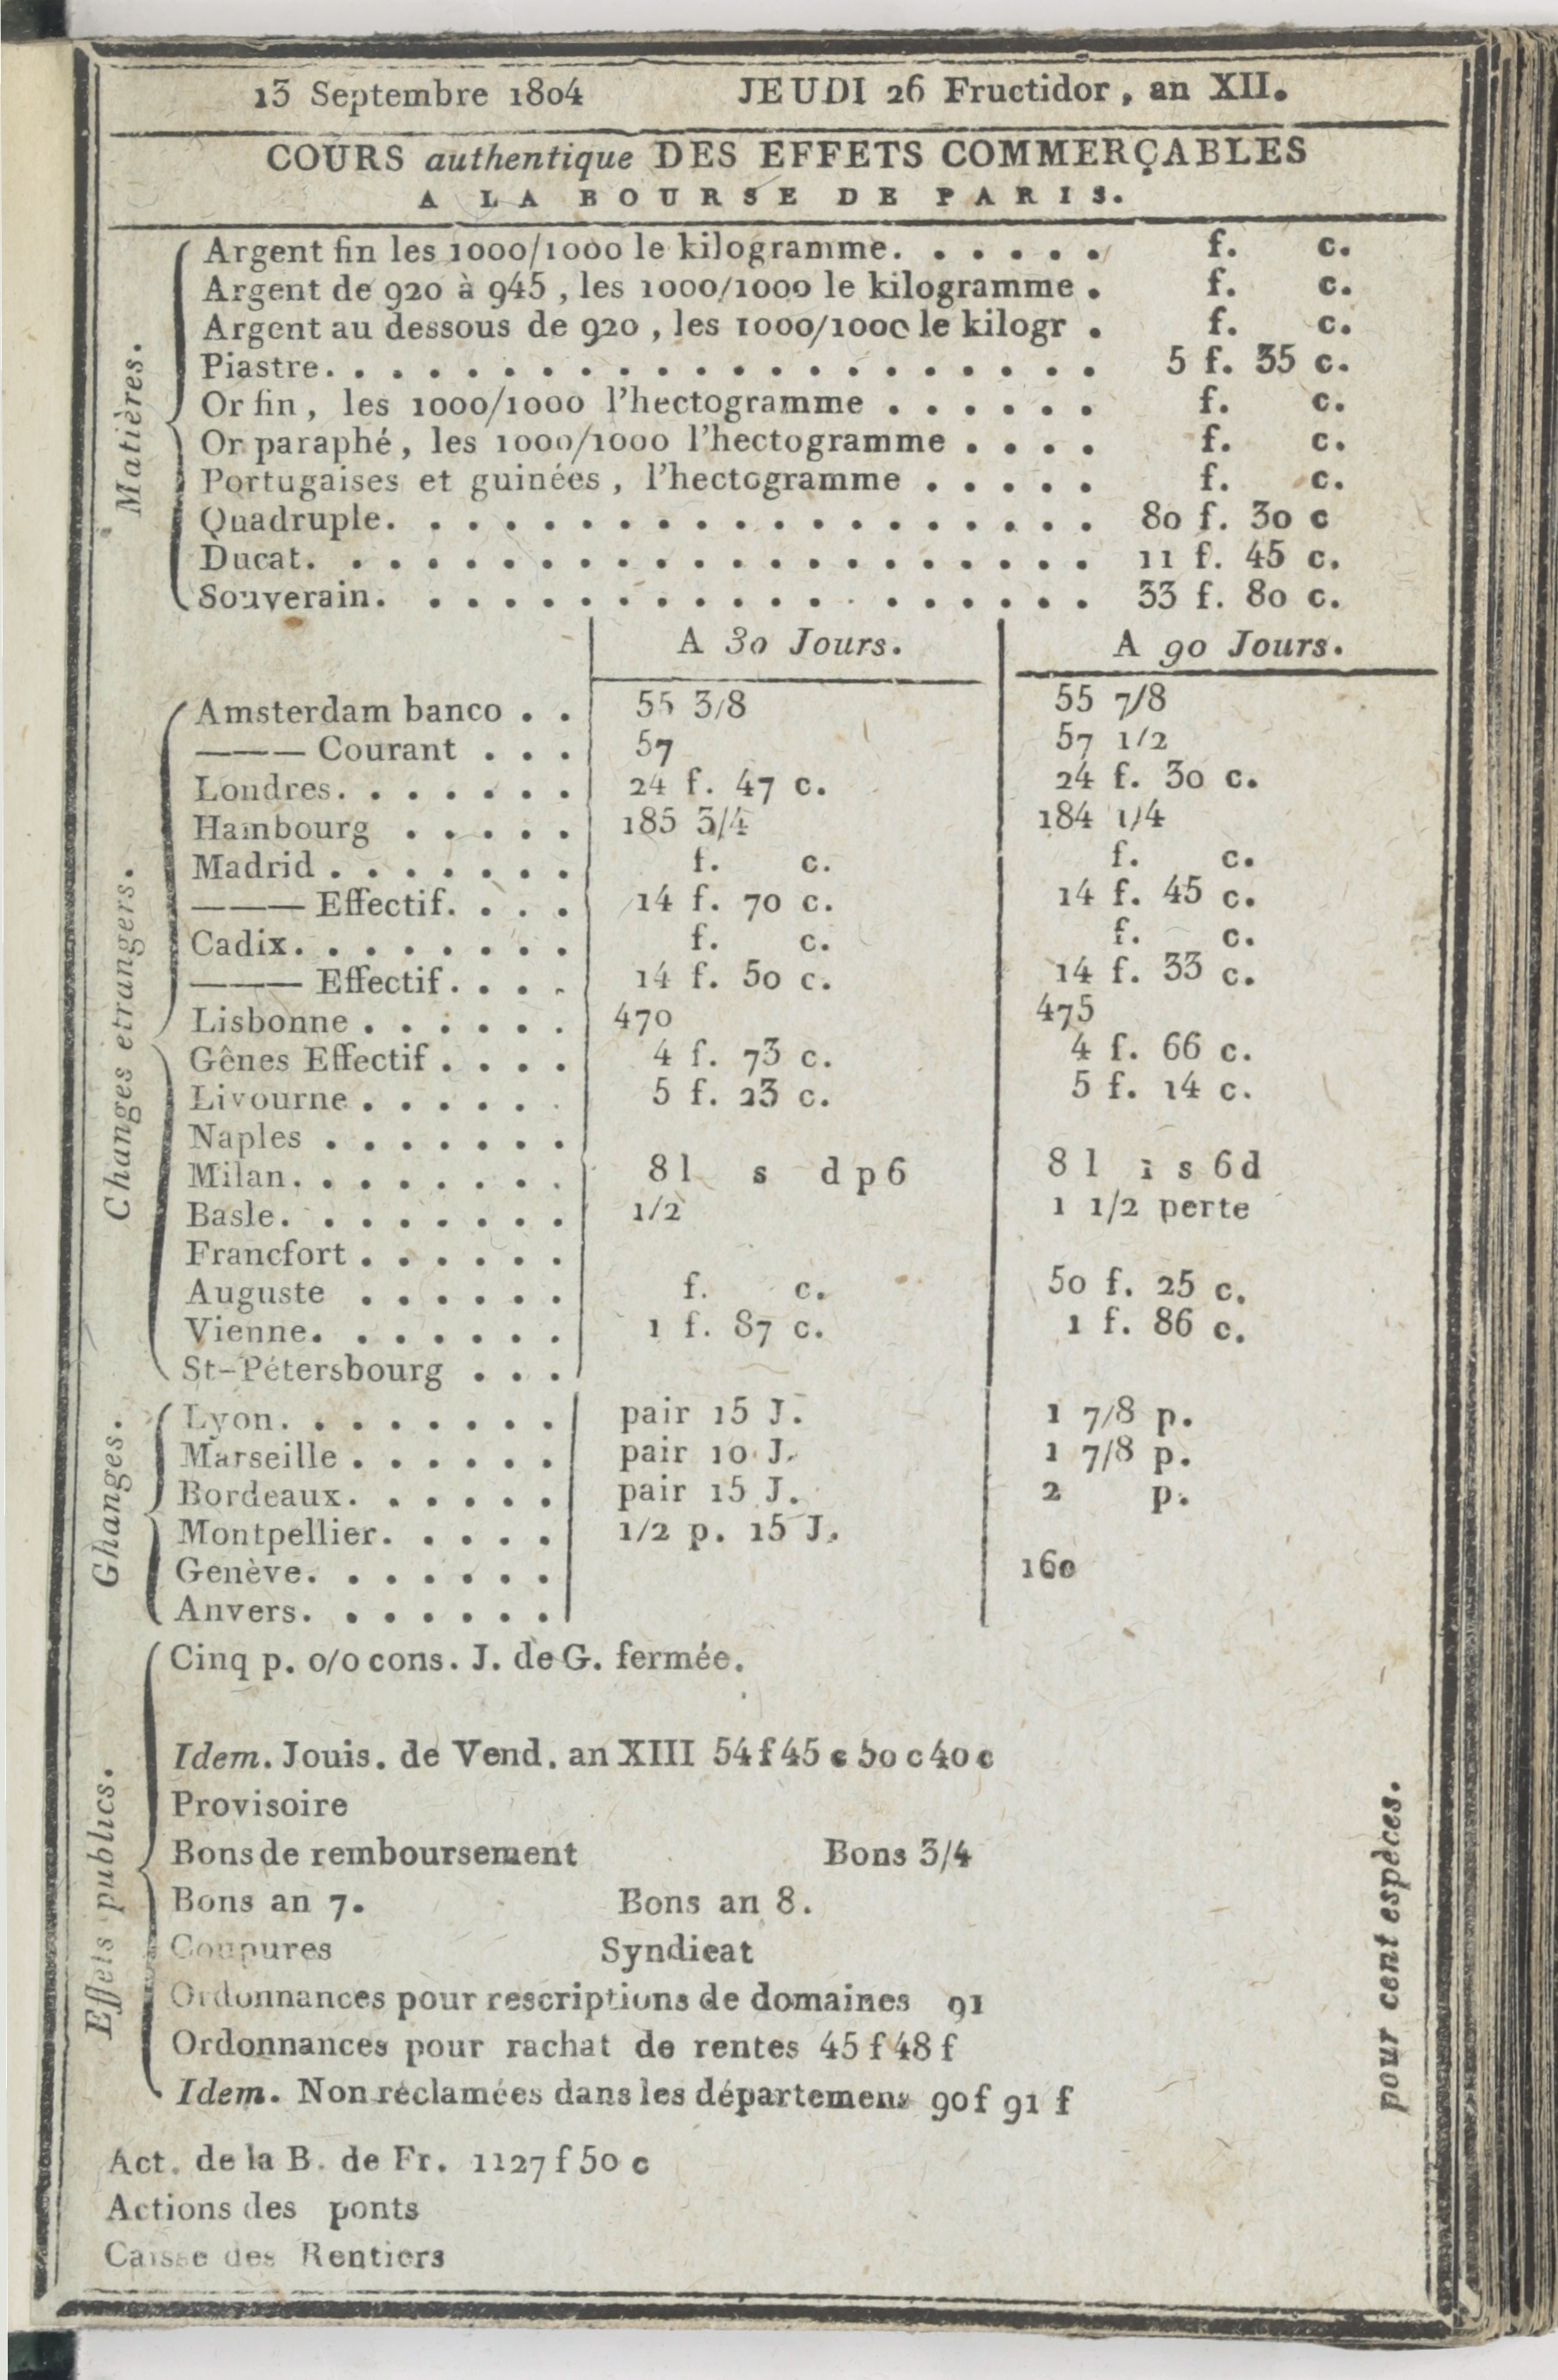 13 Septembre 1804 JEUDI 26 Fructidor, an XII.
COURS authentique DES EFFETS COMMERÇABLES
A LA BOURSE DE PARIS.
Matières.
Argent fin les 1000/1000 le kilogramme. . . . . . f. c.
Argent de 920 à 945, les 1000/1000 le kilogramme . f. c.
Argent au dessous de 920, les 1000/1000 le kilogr . f. c.
Piastre. . . . . . . . . . . . . . . . . . . . . 5 f. 35 c.
Or fin, les 1000/1000 l'hectogramme . . . . . . f. c.
Or paraphé, les 1000/1000 l'hectogramme . . . . f. c.
Portugaises et guinées, l'hectogramme . . . . . f. c.
Quadruple. . . . . . . . . . . . . . . . . . . 80 f. 30 c
Ducat. . . . . . . . . . . . . . . . . . . . . 11 f. 45 c.
Souverain. . . . . . . . . . . . . . . . . . . 33 f. 80 c.
A 30 Jours. A 90 Jours.
Changes etrangers.
Amsterdam banco . . 55 3/8 55 7/8
——— Courant . . . 57 57 1/2
Londres. . . . . . . 24 f. 47 c. 24 f. 30 c.
Hambourg . . . . . 185 3/4 184 1/4
Madrid . . . . . . . f. c. f. c.
——— Effectif. . . . 14 f. 70 c. 14 f. 45 c.
Cadix. . . . . . . . f. c. f. c.
——— Effectif. . . . 14 f. 50 c. 14 f. 33 c.
Lisbonne . . . . . . 470 475
Gênes Effectif . . . . 4 f. 73 c. 4 f. 66 c.
Livourne . . . . . . 5 f. 23 c. 5 f. 14 c.
Naples . . . . . . .
Milan. . . . . . . . 8 l s d p 6 8 l 1 s 6 d
Basle. . . . . . . . 1/2 1 1/2 perte
Francfort . . . . . .
Auguste . . . . . . f. c. 50 f. 25 c.
Vienne. . . . . . . 1 f. 87 c. 1 f. 86 c.
St-Pétersbourg . . .
Ghanges.
Lyon. . . . . . . . pair 15 J. 1 7/8 p.
Marseille . . . . . . pair 10 J. 1 7/8 p.
Bordeaux. . . . . . pair 15 J. 2 p.
Montpellier. . . . . 1/2 p. 15 J. 
Genève. . . . . . . 160
Anvers. . . . . . .
Effets publics.
Cinq p. o/o cons. J. de G. fermée.
Idem. Jouis. de Vend. an XIII 54 f 45 c 50 c 40 c
Provisoire
Bons de remboursement Bons 3/4
Bons an 7. Bons an 8.
Coupures Syndicat
Ordonnances pour rescriptions de domaines 91
Ordonnances pour rachat de rentes 45 f 48 f
Idem. Non réclamées dans les départemens 90 f 91 f
pour cent espèces.
Act. de la B. de Fr. 1127 f 50 c
Actions des ponts
Caisse des Rentiers